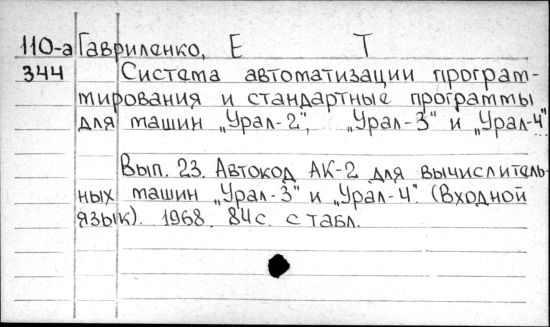 110-а Гавриленко, Е Т
344 Система автоматизации програм-
мирования и стандартные программы
для машин „Урал-2", „Урал-3" и „Урал-4"
Вып. 23. Автокод АК-2 для вычислитель-
ных машин „Урал-3" и „Урал-4". (Входной
язык). 1968. 84с. с табл.